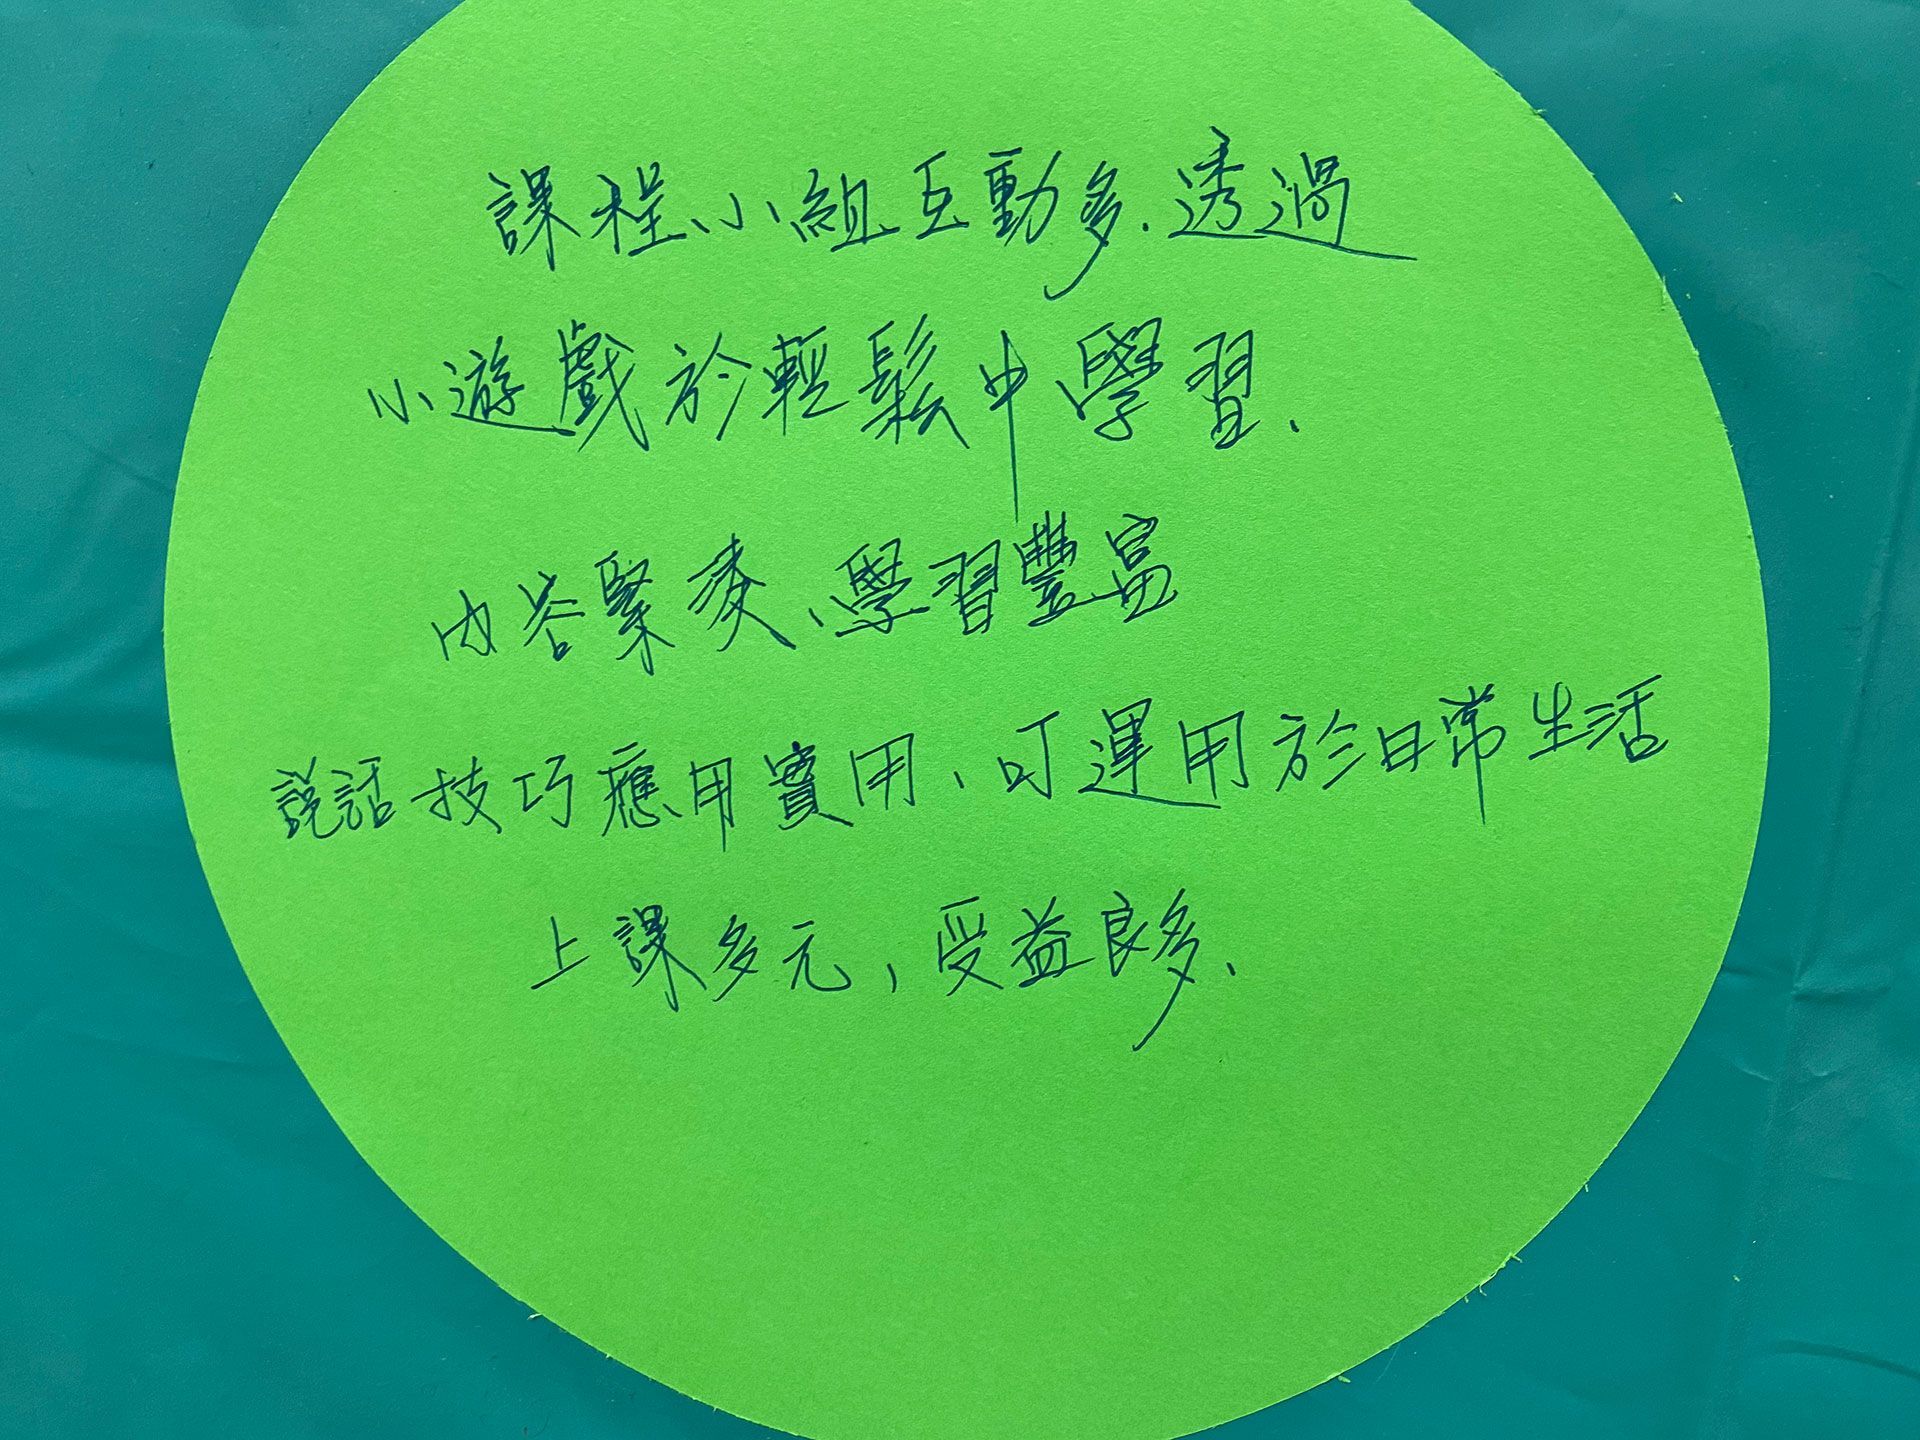 課程小組互動多.透過
小遊戲於輕鬆中學習.
內容緊湊、學習豐富
説話技巧應用實用、可運用於日常生活
上課多元,受益良多.